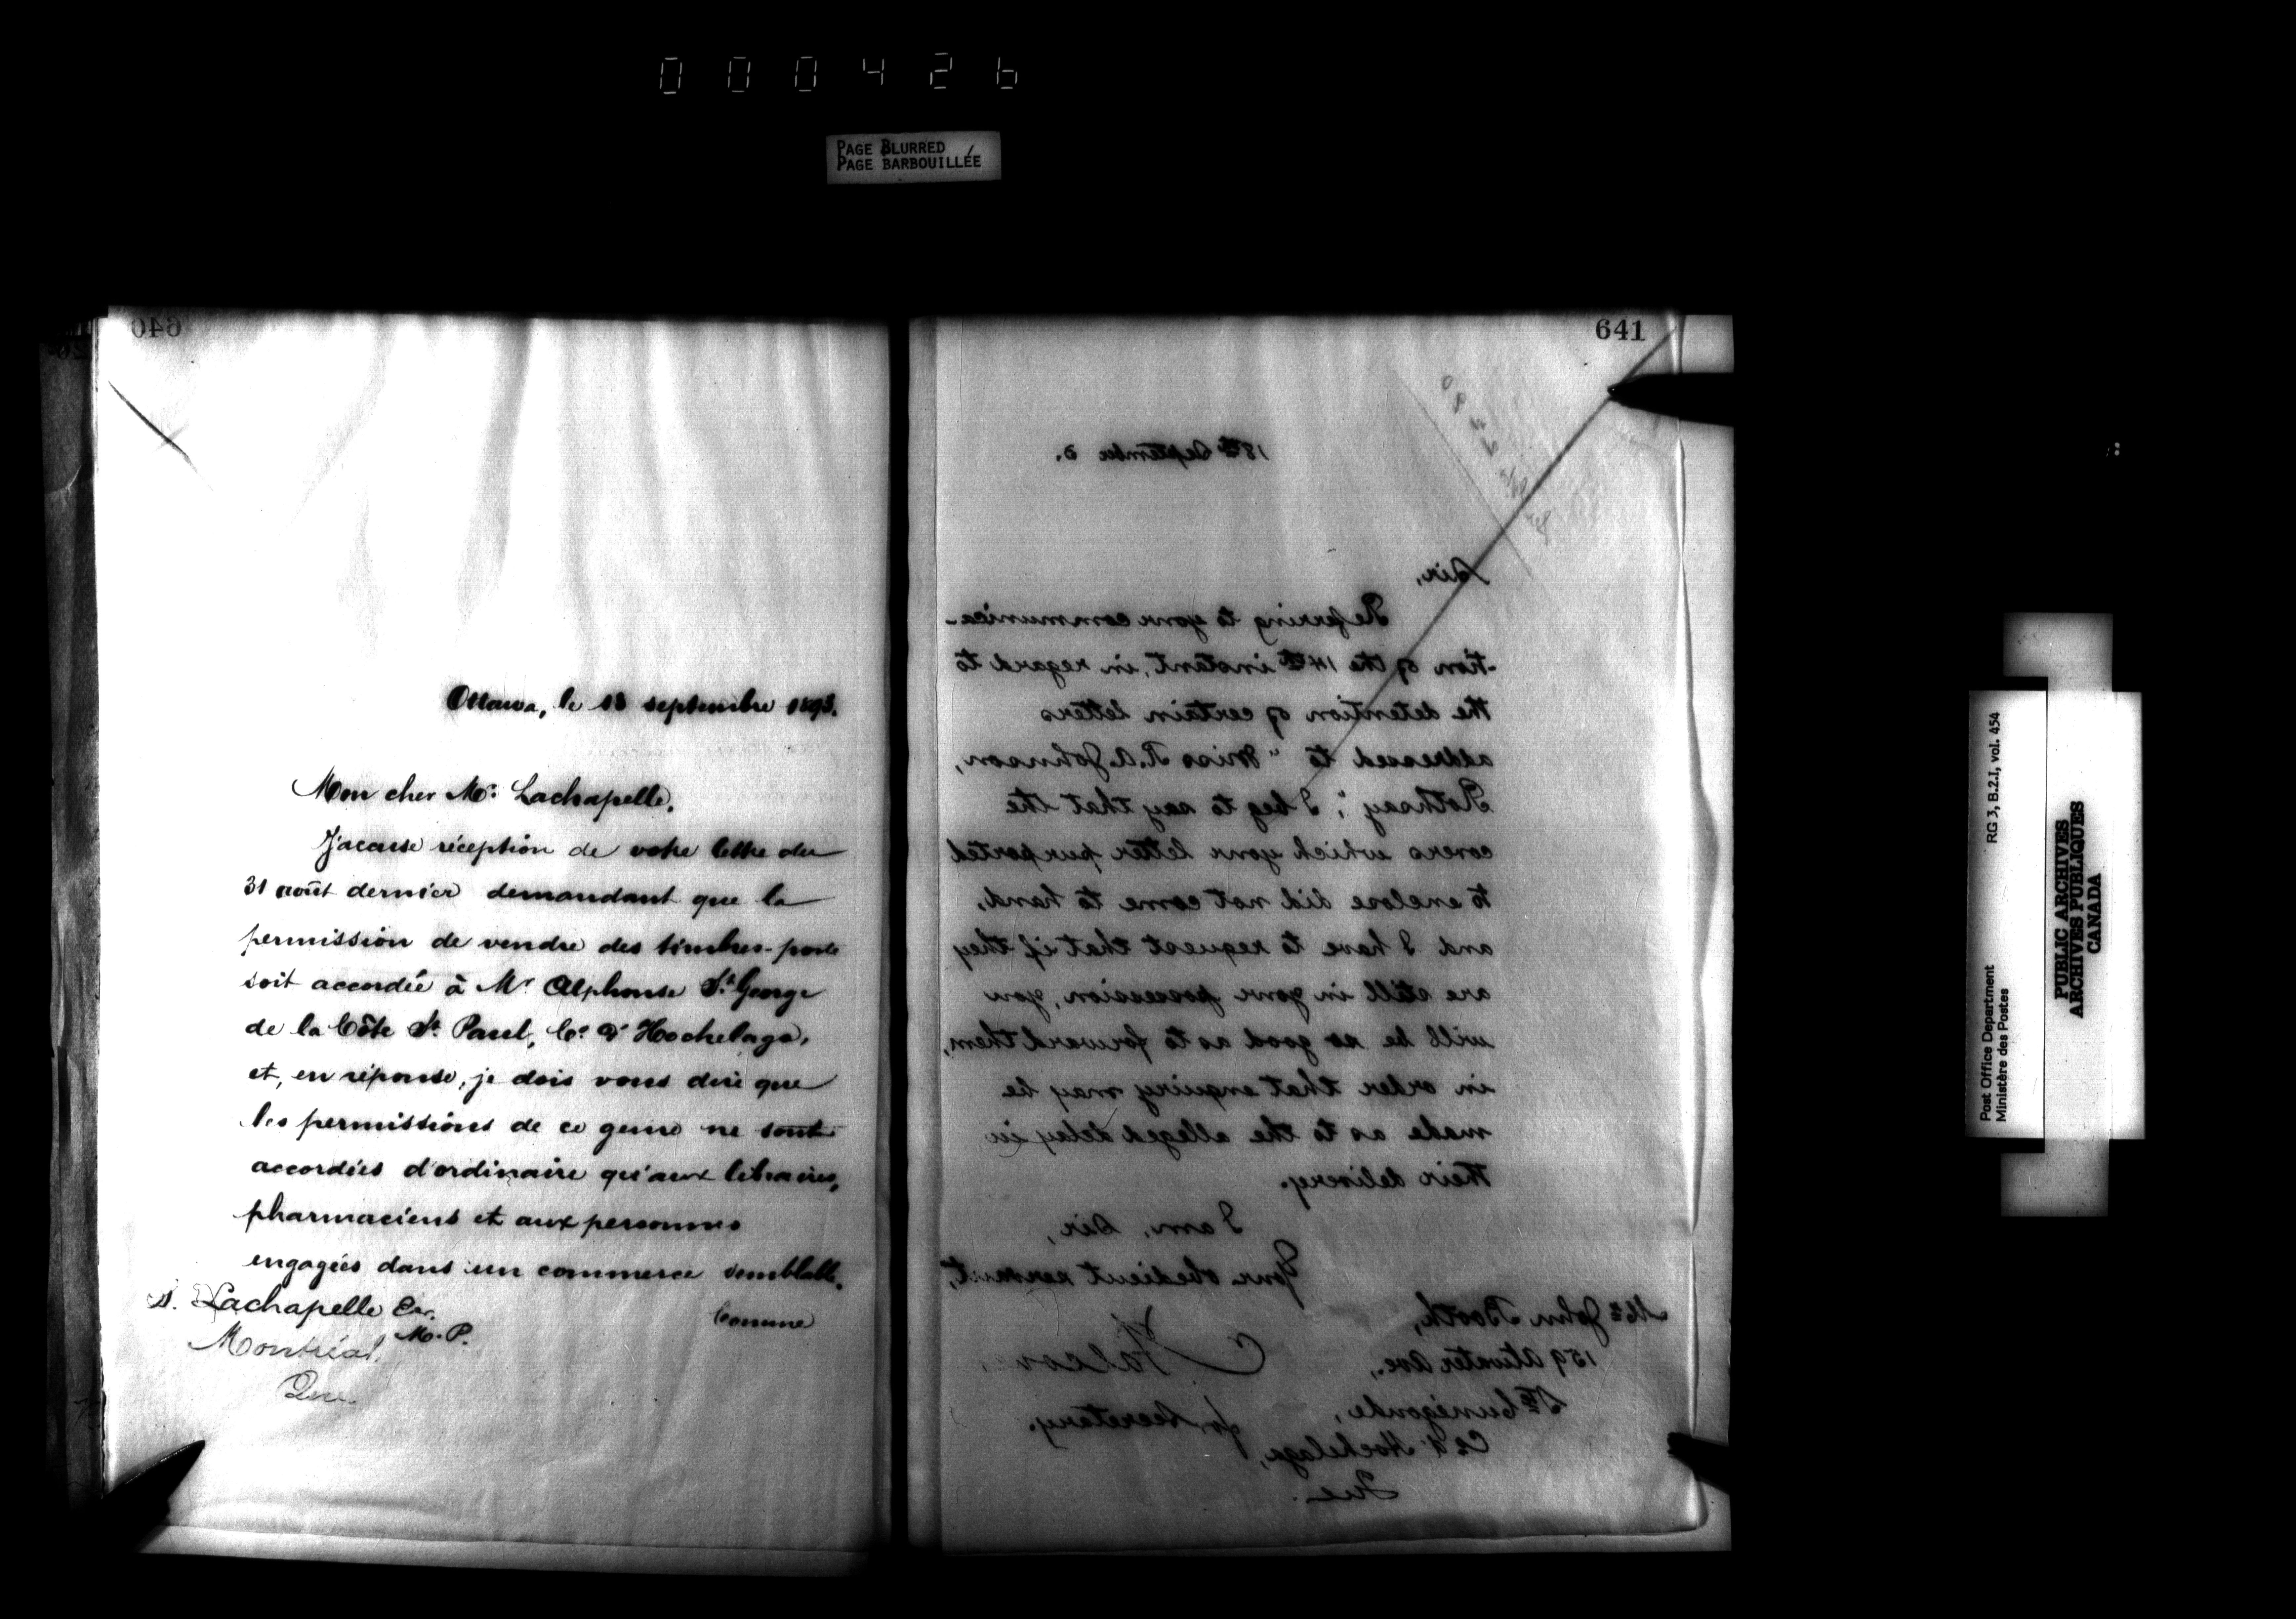 000426
PAGE BLURRED
PAGE BARBOUILLÉE
640
Ottawa, le 18 septembre 1893.
Mon cher Mr. Lachapelle,
J'accuse réception de votre lettre du
31 août dernier demandant que la
permission de vendre des timbres-poste
soit accordée à Mr Alphonse St. George
de la Côte St. Paul, Co. d'Hochelaga,
et, en réponse, je dois vous dire que
les permissions de ce genre ne sont
accordées d'ordinaire qu'aux libraires,
pharmaciens et aux personnes
engagées dans un commerce semblable.
Comme
S. Lachapelle Esr.
M.P.
Montréal,
Que.
641
18th September 3.
Sir,
Referring to your communica-
-tion of the 14th instant, in regard to
the detention of certain letters
addressed to "Miss R.A. Johnson,
Rothsay"; I beg to say that the
covers which your letter purported
to enclose did not come to hand,
and I have to request that if they
are still in your possession, you
will be so good as to forward them,
in order that enquiry may be
made as to the alleged delay in
their delivery.
I am, Sir,
Your obedient servant,
for Secretary.
Mr. John Booth,
159 Atwater Ave.,
Ste Cunégonde,
Co. d'Hochelaga,
Que.
Post Office Department
Ministère des Postes
RG 3, B.2.I, vol. 454
PUBLIC ARCHIVES
ARCHIVES PUBLIQUES
CANADA